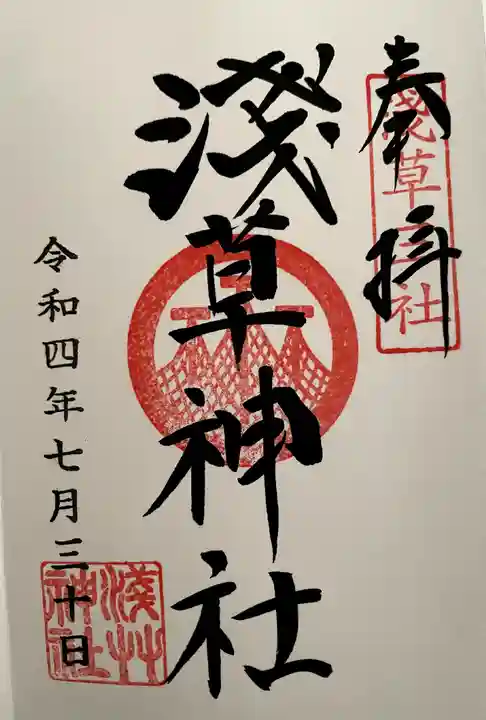 奉拝
淺草神社
淺草神社
令和四年七月三十日
淺草神社